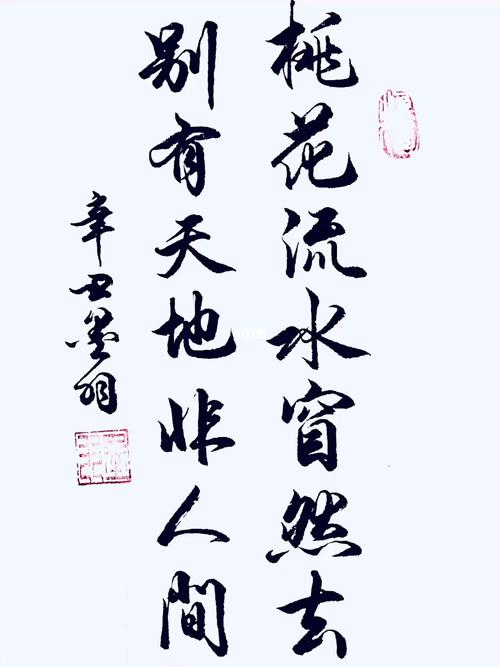 桃花流水窅然去
别有天地非人間
辛丑墨